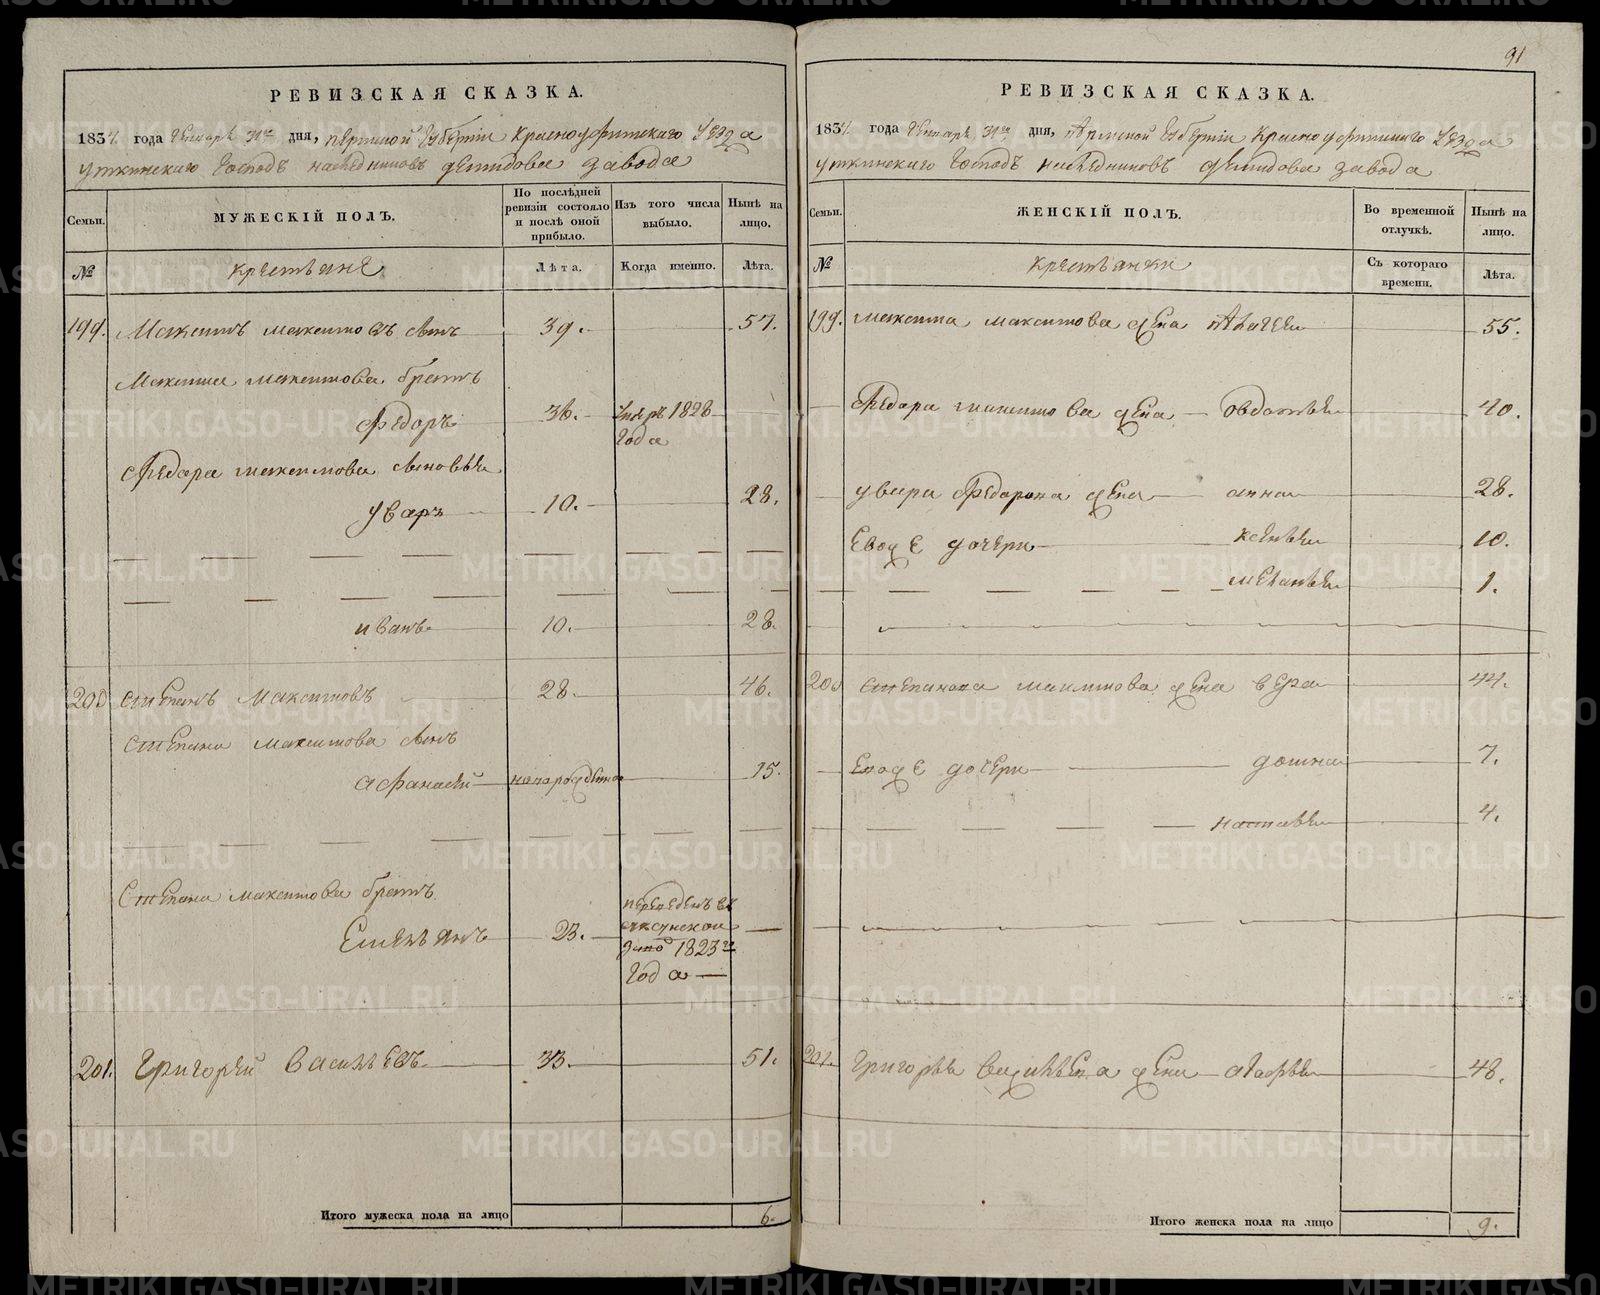 РЕВИЗСКАЯ СКАЗКА.
1834 года Генваря 31го дня, Пермской Губернiи Красноуфимскаго уѣзда
Уткинскаго Господъ наследниковъ Демидова завода
Семьи.
МУЖЕСКIЙ ПОЛЪ.
По послѣдней ревизiи состояло и послѣ оной прибыло.
Изъ того числа выбыло.
Нынѣ на лицо.
№
крестьяне
Лѣта.
Когда именно.
Лѣта.
199. Максимъ Максимовъ 39. 57.
Максима Максимова братъ
Федоръ 36. 1828
года
Федора Максимова сыновья
Уваръ 10. 28.
Иванъ 10. 28.
200 Степанъ Максимовъ 28. 46.
Степана Максимова сынъ
Афанасей 15.
Степана Максимова братъ
Емельянъ 23. переведенъ въ
1823го
года
201. Григорей Васильевъ 33. 51.
Итого мужеска пола на лицо 6.
91
РЕВИЗСКАЯ СКАЗКА.
1834 года Генваря 31го дня, Пермской Губернiи Красноуфимскаго уѣзда
Уткинскаго Господъ наследниковъ Демидова завода
Семьи.
ЖЕНСКIЙ ПОЛЪ.
Во временной отлучкѣ.
Нынѣ на лицо.
№
крестьянки
Съ котораго времени.
Лѣта.
199. Максима Максимова жена Пелагея 55.
Федора Максимова жена Овдотья 40.
Увара Федорова жена анна 28.
Евоже дочери Ксенья 10.
Меланья 1.
200 Степана Максимова жена вера 44.
Евоже дочери домна 7.
настасья 4.
201. Григорья Васильева жена агафья 48.
Итого женска пола на лицо 9.
METRIKI.GASO-URAL.RU